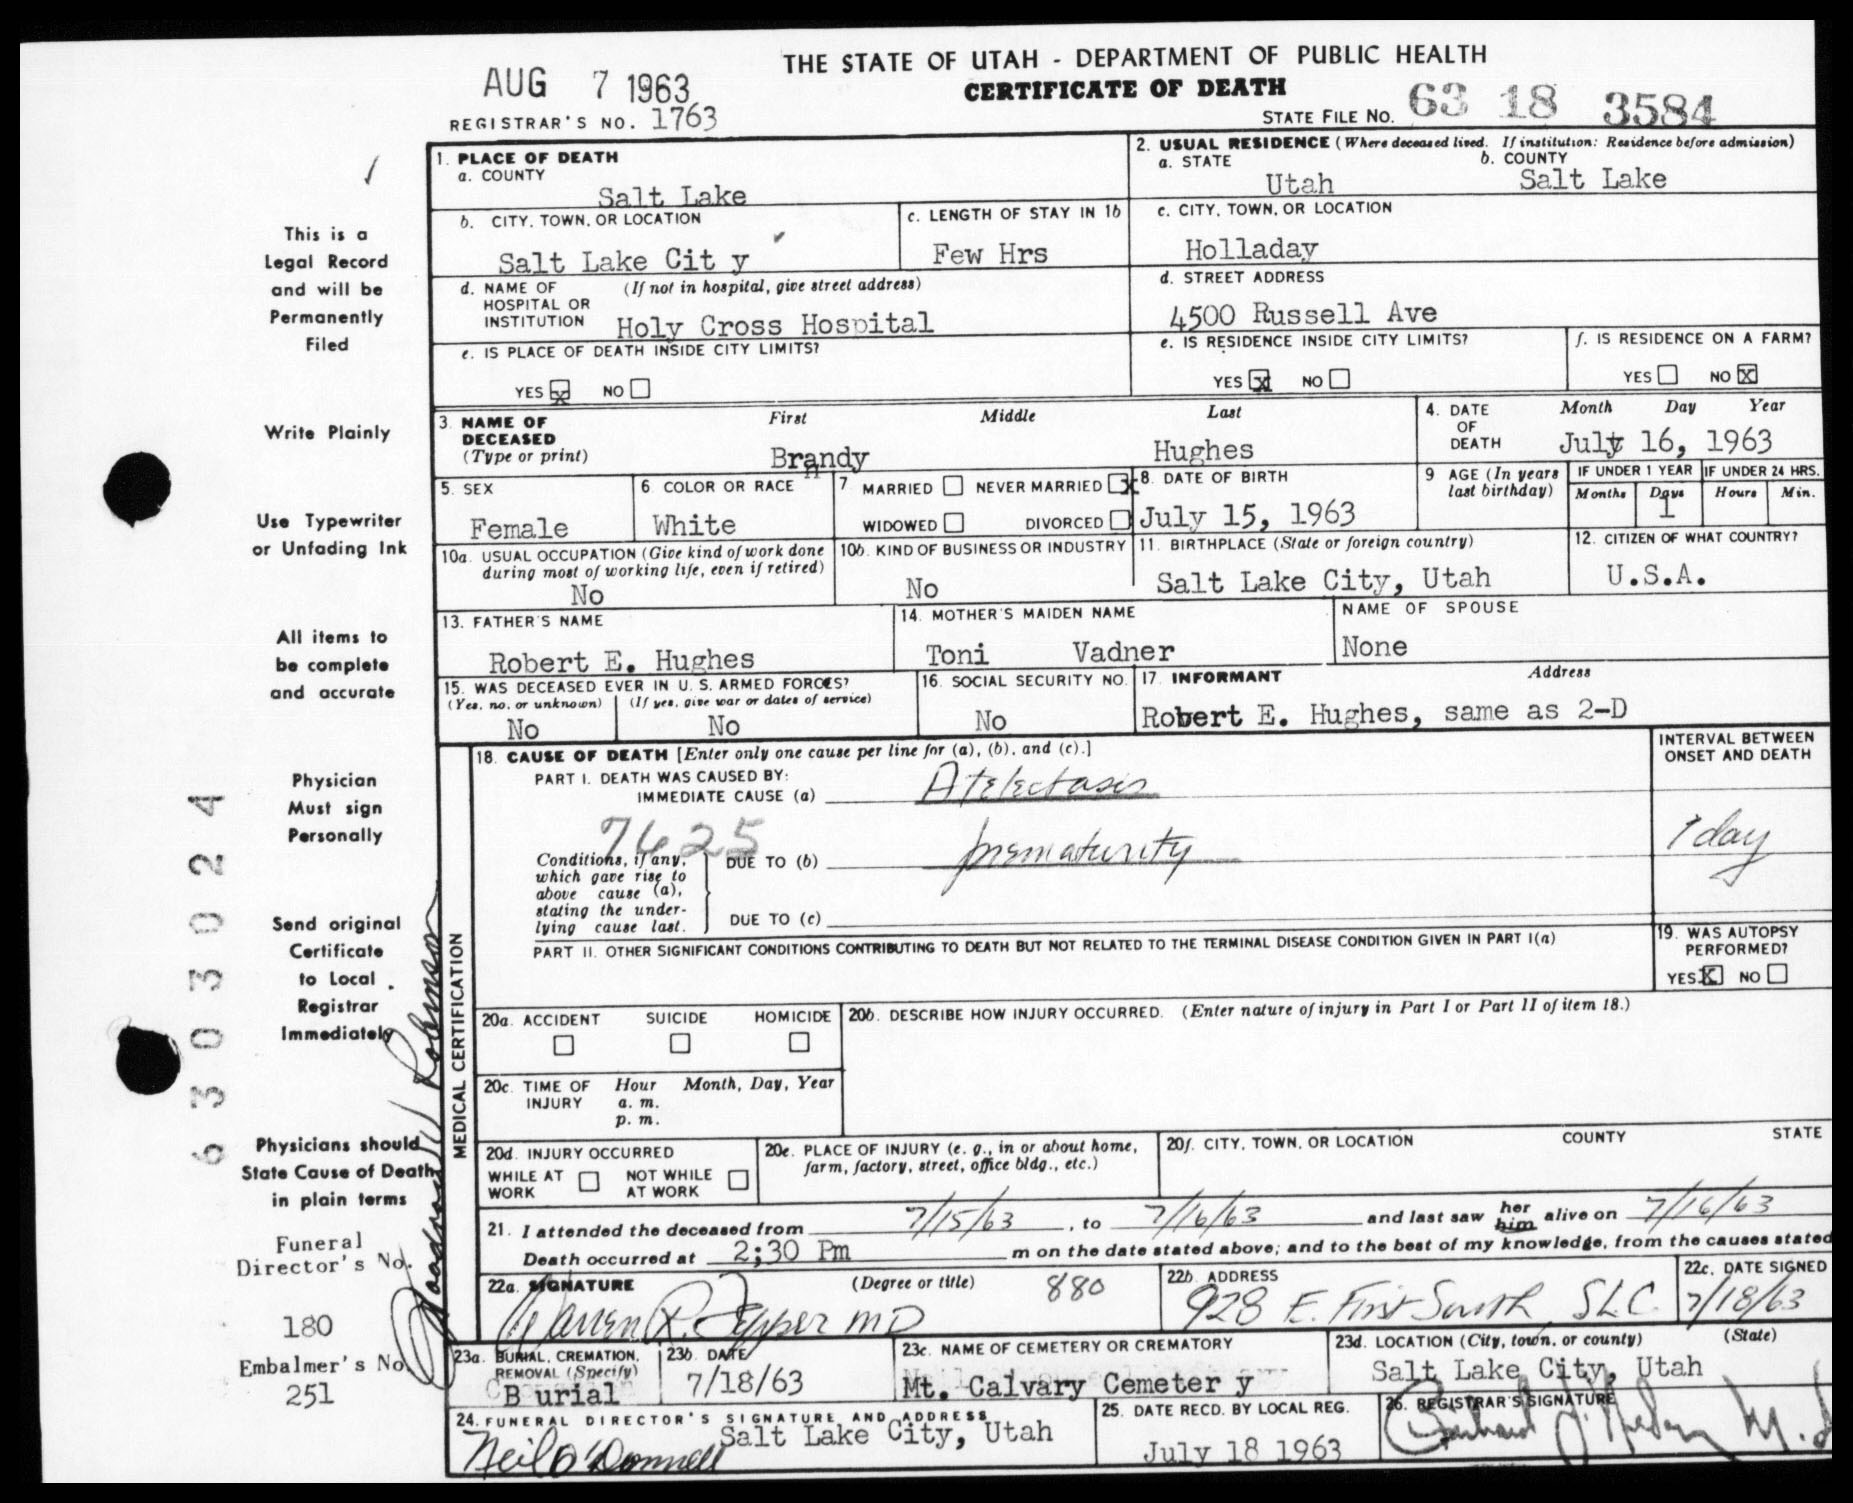 THE STATE OF UTAH - DEPARTMENT OF PUBLIC HEALTH
AUG 7 1963
CERTIFICATE OF DEATH
REGISTRAR'S NO. 1763
STATE FILE NO. 63 18 3584
1. PLACE OF DEATH
a. COUNTY
Salt Lake
2. USUAL RESIDENCE (Where deceased lived. If institution: Residence before admission)
a. STATE
Utah
b. COUNTY
Salt Lake
b. CITY, TOWN, OR LOCATION
Salt Lake Cit y
c. LENGTH OF STAY IN 1b
Few Hrs
c. CITY, TOWN, OR LOCATION
Holladay
d. NAME OF HOSPITAL OR INSTITUTION (If not in hospital, give street address)
Holy Cross Hospital
d. STREET ADDRESS
4500 Russell Ave
e. IS PLACE OF DEATH INSIDE CITY LIMITS?
YES X NO
e. IS RESIDENCE INSIDE CITY LIMITS?
YES X NO
f. IS RESIDENCE ON A FARM?
YES NO X
3. NAME OF DECEASED (Type or print)
First Middle Last
Brandy Hughes
4. DATE OF DEATH
Month Day Year
July 16, 1963
5. SEX
Female
6. COLOR OR RACE
White
7. MARRIED NEVER MARRIED X
WIDOWED DIVORCED
8. DATE OF BIRTH
July 15, 1963
9 AGE (In years last birthday)
IF UNDER 1 YEAR IF UNDER 24 HRS.
Months Days Hours Min.
1
10a. USUAL OCCUPATION (Give kind of work done during most of working life, even if retired)
No
10b. KIND OF BUSINESS OR INDUSTRY
No
11. BIRTHPLACE (State or foreign country)
Salt Lake City, Utah
12. CITIZEN OF WHAT COUNTRY?
U.S.A.
13. FATHER'S NAME
Robert E. Hughes
14. MOTHER'S MAIDEN NAME
Toni Vadner
NAME OF SPOUSE
None
15. WAS DECEASED EVER IN U. S. ARMED FORCES?
(Yes, no, or unknown) (If yes, give war or dates of service)
No No
16. SOCIAL SECURITY NO.
No
17. INFORMANT Address
Robert E. Hughes, same as 2-D
MEDICAL CERTIFICATION
18. CAUSE OF DEATH [Enter only one cause per line for (a), (b), and (c).]
PART I. DEATH WAS CAUSED BY:
IMMEDIATE CAUSE (a) Atelectasis
7625
Conditions, if any, which gave rise to above cause (a), stating the underlying cause last.
DUE TO (b) prematurity
DUE TO (c)
INTERVAL BETWEEN ONSET AND DEATH
1 day
PART II. OTHER SIGNIFICANT CONDITIONS CONTRIBUTING TO DEATH BUT NOT RELATED TO THE TERMINAL DISEASE CONDITION GIVEN IN PART I(a)
19. WAS AUTOPSY PERFORMED?
YES X NO
20a. ACCIDENT SUICIDE HOMICIDE
20b. DESCRIBE HOW INJURY OCCURRED. (Enter nature of injury in Part I or Part II of item 18.)
20c. TIME OF INJURY Hour Month, Day, Year
a. m.
p. m.
20d. INJURY OCCURRED
WHILE AT WORK NOT WHILE AT WORK
20e. PLACE OF INJURY (e. g., in or about home, farm, factory, street, office bldg., etc.)
20f. CITY, TOWN, OR LOCATION COUNTY STATE
21. I attended the deceased from 7/15/63, to 7/16/63 and last saw her him alive on 7/16/63
Death occurred at 2;30 Pm m on the date stated above; and to the best of my knowledge, from the causes stated
22a. SIGNATURE (Degree or title) 880
Warren R. Tepper MD
22b. ADDRESS
928 E. First South SLC
22c. DATE SIGNED
7/18/63
23a. BURIAL, CREMATION, REMOVAL (Specify)
B urial
23b. DATE
7/18/63
23c. NAME OF CEMETERY OR CREMATORY
Mt. Calvary Cemeter y
23d. LOCATION (City, town, or county) (State)
Salt Lake City, Utah
24. FUNERAL DIRECTOR'S SIGNATURE AND ADDRESS
Neil O'Donnell Salt Lake City, Utah
25. DATE RECD. BY LOCAL REG.
July 18 1963
26. REGISTRAR'S SIGNATURE
This is a
Legal Record
and will be
Permanently
Filed
Write Plainly
Use Typewriter
or Unfading Ink
All items to
be complete
and accurate
Physician
Must sign
Personally
Send original
Certificate
to Local
Registrar
Immediately
Physicians should
State Cause of Death
in plain terms
Funeral
Director's No.
180
Embalmer's No.
251
6303024
Robinson